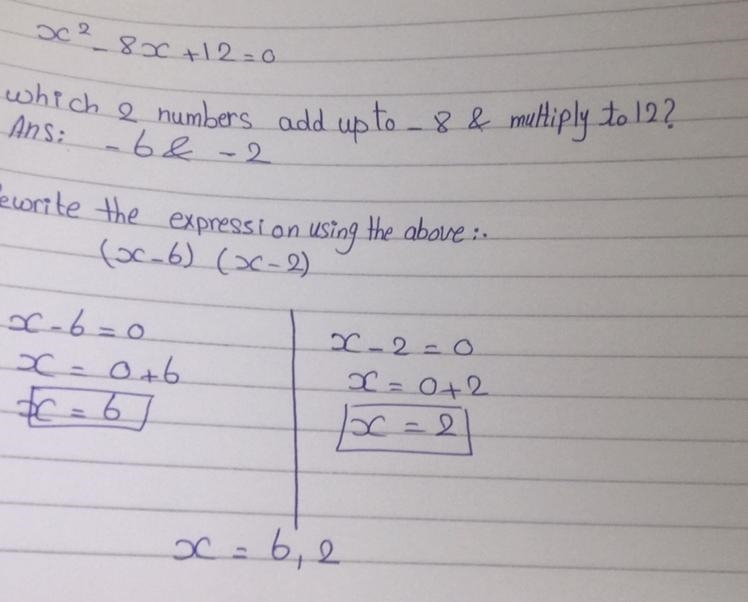 x² - 8x + 12 = 0
which 2 numbers add up to - 8 & multiply to 12?
Ans: - 6 & - 2
ewrite the expression using the above :.
(x - 6) (x - 2)
x - 6 = 0
x = 0 + 6
x = 6
x - 2 = 0
x = 0 + 2
x = 2
x = 6, 2